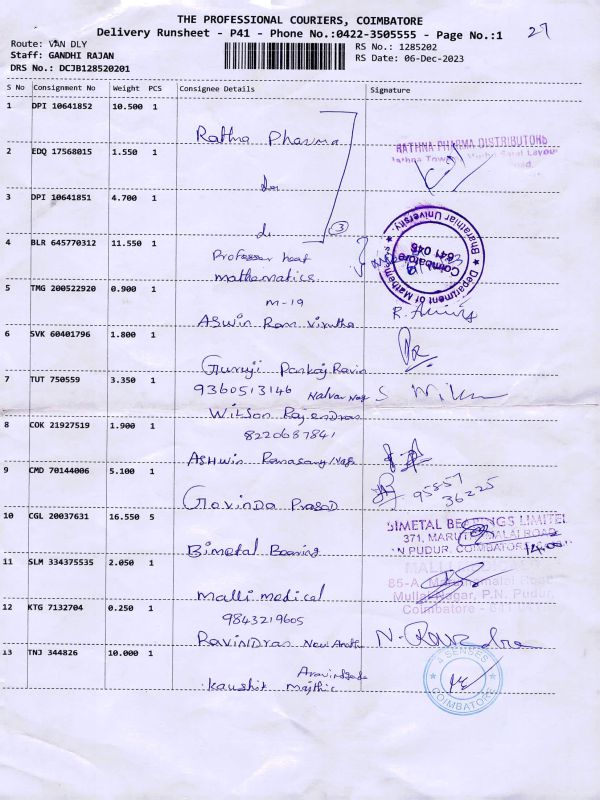 THE PROFESSIONAL COURIERS, COIMBATORE
Delivery Runsheet - P41 - Phone No.:0422-3505555 - Page No.:1
27
Route: VAN DLY
RS No.: 1285202
Staff: GANDHI RAJAN
RS Date: 06-Dec-2023
DRS No.: DCJB128520201
S No Consignment No Weight PCS Consignee Details Signature
1 DPI 10641852 10.500 1
Rathna Pharma
RATHNA PHARMA DISTRIBUTORS
2 EDQ 17568015 1.550 1
do
3 DPI 10641851 4.700 1
do
3
4 BLR 645770312 11.550 1
Professor head
mathematics
Department of Mathematics
Bharathiar University
Coimbatore
641 046
5 TMG 200522920 0.900 1
M-19
Aswin Ram
6 SVK 60401796 1.800 1
Guruji Pankaj Ravin
7 TUT 750559 3.350 1
9360513146
Wilson Rajendran
8 COK 21927519 1.900 1
8220687841
Ashwin
9 CMD 70144006 5.100 1
95857
36225
Govinda Prasad
10 CGL 20037631 16.550 5
Bimetal Bearing
BIMETAL BEARINGS LIMITED
371, MARUTHAMALAI ROAD
N PUDUR, COIMBATORE
11 SLM 334375535 2.050 1
Malli medical
85-A,
Mullai Nagar, P.N. Pudur,
Coimbatore
12 KTG 7132704 0.250 1
9843219605
Ravindran New
13 TNJ 344826 10.000 1
4 SENSES
COIMBATORE